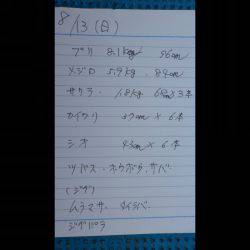 8/13(日)
ブリ 8.1kg 96cm
メジロ 5.9kg 84cm
サワラ 1.8kg 68cm 3本
カイワリ 37cm × 6本
シオ 43cm × 6本
ツバス・ホウボウ・サバ
(ジグ)
ムラマサ・タイラバ
ジグパラ